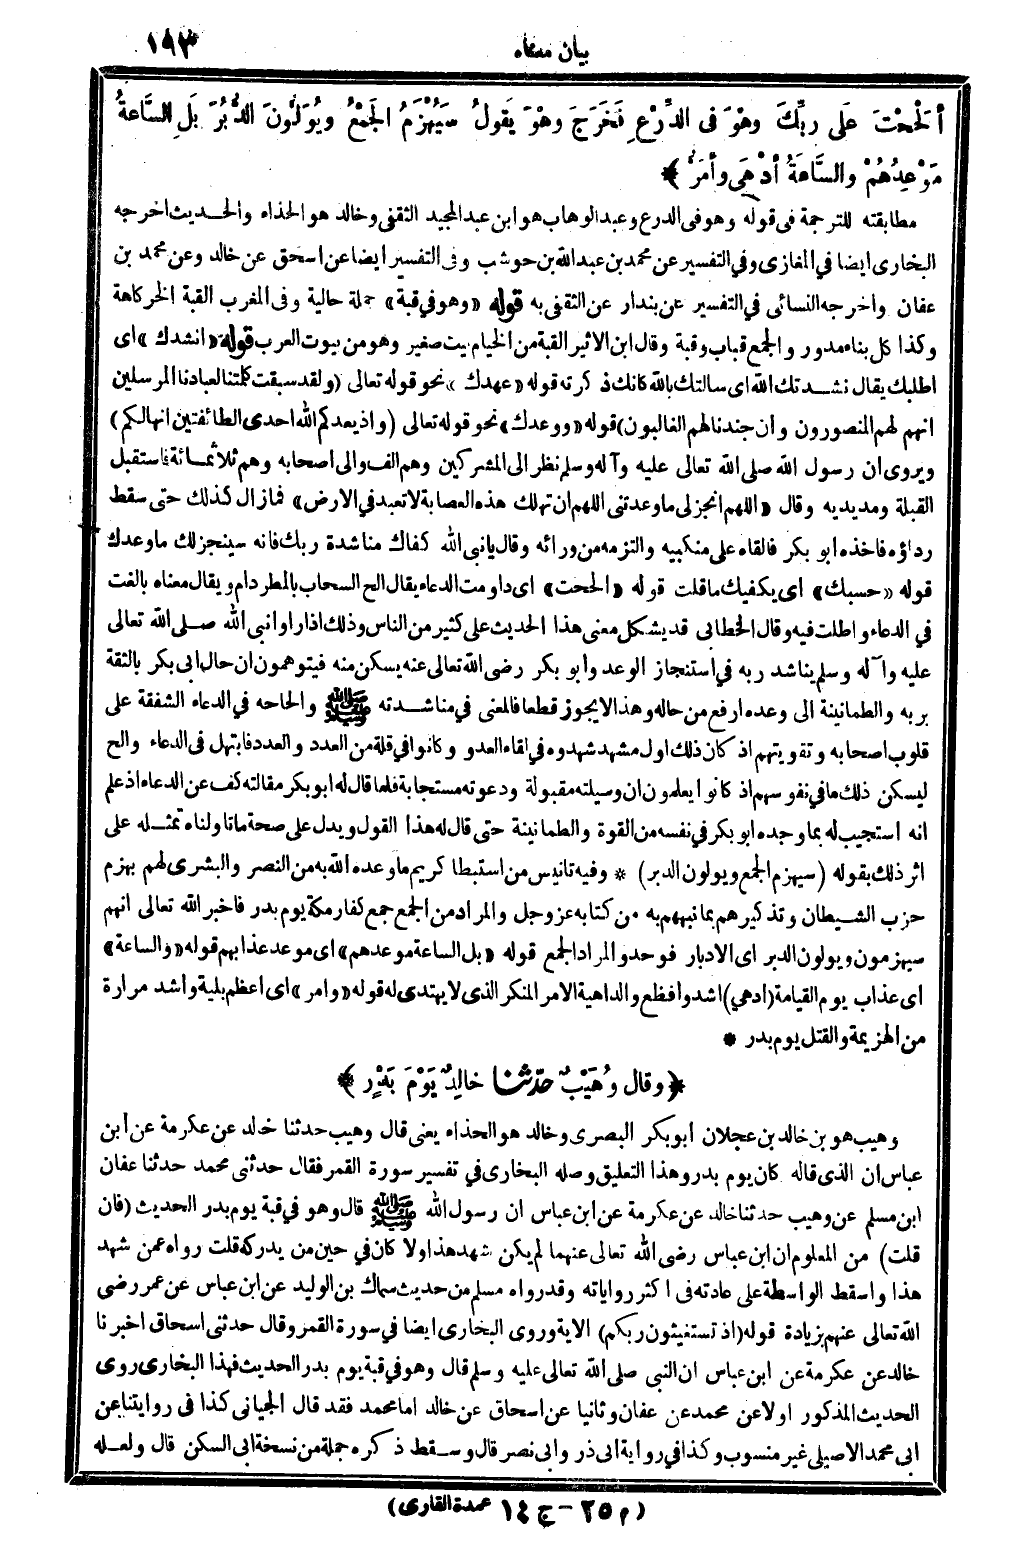 بيان معناه
١٩٣
أَلْحَحْتَ عَلَى رَبِّكَ وَهْوَ فِى الدِّرْعِ فَخَرَجَ وَهْوَ يَقُولُ سَيُهْزَمُ الجَمْعُ وَيُوَلُّونَ الدُّبُرَ بَلِ السَّاعَةُ
مَوْعِدُهُمْ وَالسَّاعَةُ أَدْهَى وَأَمَرُّ ﴾
مطابقته للترجمة فى قوله وهو فى الدرع وعبد الوهاب هو ابن عبد المجيد الثقفى وخالد هو الحذاء والحديث اخرجه
البخارى ايضا في المغازى وفي التفسير عن محمد بن عبد الله بن حوشب وفى التفسير ايضا عن اسحق عن خالد وعن محمد بن
عفان واخرجه النسائى في التفسير عن بندار عن الثقفى به قوله «وهو في قبة» جملة حالية وفى المغرب القبة الخركاهة
وكذا كل بناء مدور والجمع قباب وقبة وقال ابن الاثير القبة من الخيام بيت صغير وهو من بيوت العرب قوله «انشدك» اى
اطلبك يقال نشدتك الله اى سالتك بالله كانك ذكرته قوله «عهدك» نحو قوله تعالى (ولقد سبقت كلمتنا لعبادنا المرسلين
انهم لهم المنصورون وان جندنا لهم الغالبون) قوله «ووعدك» نحو قوله تعالى (واذ يعدكم الله احدى الطائفتين انها لكم)
ويروى ان رسول الله صلى الله تعالى عليه وآله وسلم نظر الى المشركين وهم الف والى اصحابه وهم ثلاثمائة فاستقبل
القبلة ومد يديه وقال «اللهم انجز لى ما وعدتنى اللهم ان تهلك هذه العصابة لا تعبد في الارض» فما زال كذلك حتى سقط
رداؤه فاخذه ابو بكر فالقاه على منكبيه والتزمه من ورائه وقال يا نبى الله كفاك مناشدة ربك فانه سينجز لك ما وعدك
قوله «حسبك» اى يكفيك ما قلت قوله «الححت» اى داومت الدعاء يقال الح السحاب بالمطر دام ويقال معناه بالغت
في الدعاء واطلت فيه وقال الخطابى قد يشكل معنى هذا الحديث على كثير من الناس وذلك اذا راوا نبى الله صلى الله تعالى
عليه وآله وسلم يناشد ربه في استنجاز الوعد وأبو بكر رضى الله تعالى عنه يسكن منه فيتوهمون ان حال ابى بكر بالثقة
بربه والطمانينة الى وعده ارفع من حاله وهذا لا يجوز قطعا فالمعنى في مناشدته ﷺ والحاحه في الدعاء الشفقة على
قلوب اصحابه وتقويتهم اذ كان ذلك اول مشهد شهدوه في لقاء العدو وكانوا في قلة من العدد والعدد فابتهل فى الدعاء والح
ليسكن ذلك ما في نفوسهم اذ كانوا يعلمون ان وسيلته مقبولة ودعوته مستجابة فلما قال له ابو بكر مقالته كف عن الدعاء اذ علم
انه استجيب له بما وجده ابو بكر في نفسه من القوة والطمانينة حتى قال له هذا القول ويدل على صحة ما تاولناه تمثله على
اثر ذلك بقوله (سيهزم الجمع ويولون الدبر) * وفيه تانيس من استبطا كريم ما وعده الله به من النصر والبشرى لهم بهزم
حزب الشيطان وتذكيرهم بما نبههم به من كتابه عز وجل والمراد من الجمع جمع كفار مكة يوم بدر فاخبر الله تعالى انهم
سيهزمون ويولون الدبر اى الادبار فوحد والمراد الجمع قوله «بل الساعة موعدهم» اى موعد عذابهم قوله «والساعة»
اى عذاب يوم القيامة (ادهى) اشد وافظع والداهية الامر المنكر الذى لا يهتدى له قوله «وامر» اى اعظم بلية واشد مرارة
من الهزيمة والقتل يوم بدر *
﴿ وقال وُهَيْبٌ حَدَّثَنَا خالِدٌ يَوْمَ بَدْرٍ ﴾
وهيب هو بن خالد بن عجلان أبو بكر البصرى وخالد هو الحذاء يعنى قال وهيب حدثنا خالد عن عكرمة عن ابن
عباس ان الذى قاله كان يوم بدر وهذا التعليق وصله البخارى في تفسير سورة القمر فقال حدثنى محمد حدثنا عفان
ابن مسلم عن وهيب حدثنا خالد عن عكرمة عن ابن عباس ان رسول الله ﷺ قال وهو في قبة يوم بدر الحديث (فان
قلت) من المعلوم ان ابن عباس رضى الله تعالى عنهما لم يكن شهد هذا ولا كان في حين من يدركه قلت رواه عمن شهد
هذا واسقط الواسطة على عادته فى اكثر رواياته وقد رواه مسلم من حديث سماك بن الوليد عن ابن عباس عن عمر رضى
الله تعالى عنهم بزيادة قوله (اذ تستغيثون ربكم) الاية وروى البخارى ايضا في سورة القمر وقال حدثنى اسحاق اخبرنا
خالد عن عكرمة عن ابن عباس ان النبى صلى الله تعالى عليه وسلم قال وهو في قبة يوم بدر الحديث فهذا البخارى روى
الحديث المذكور اولا عن محمد عن عفان وثانيا عن اسحاق عن خالد اما محمد فقد قال الجيانى كذا فى روايتنا عن
ابى محمد الاصيلى غير منسوب وكذا في رواية ابى ذر وابى نصر قال وسقط ذكره جملة من نسخة ابى السكن قال ولعله
(م ٢٥ - ج ١٤ عمدة القارى)